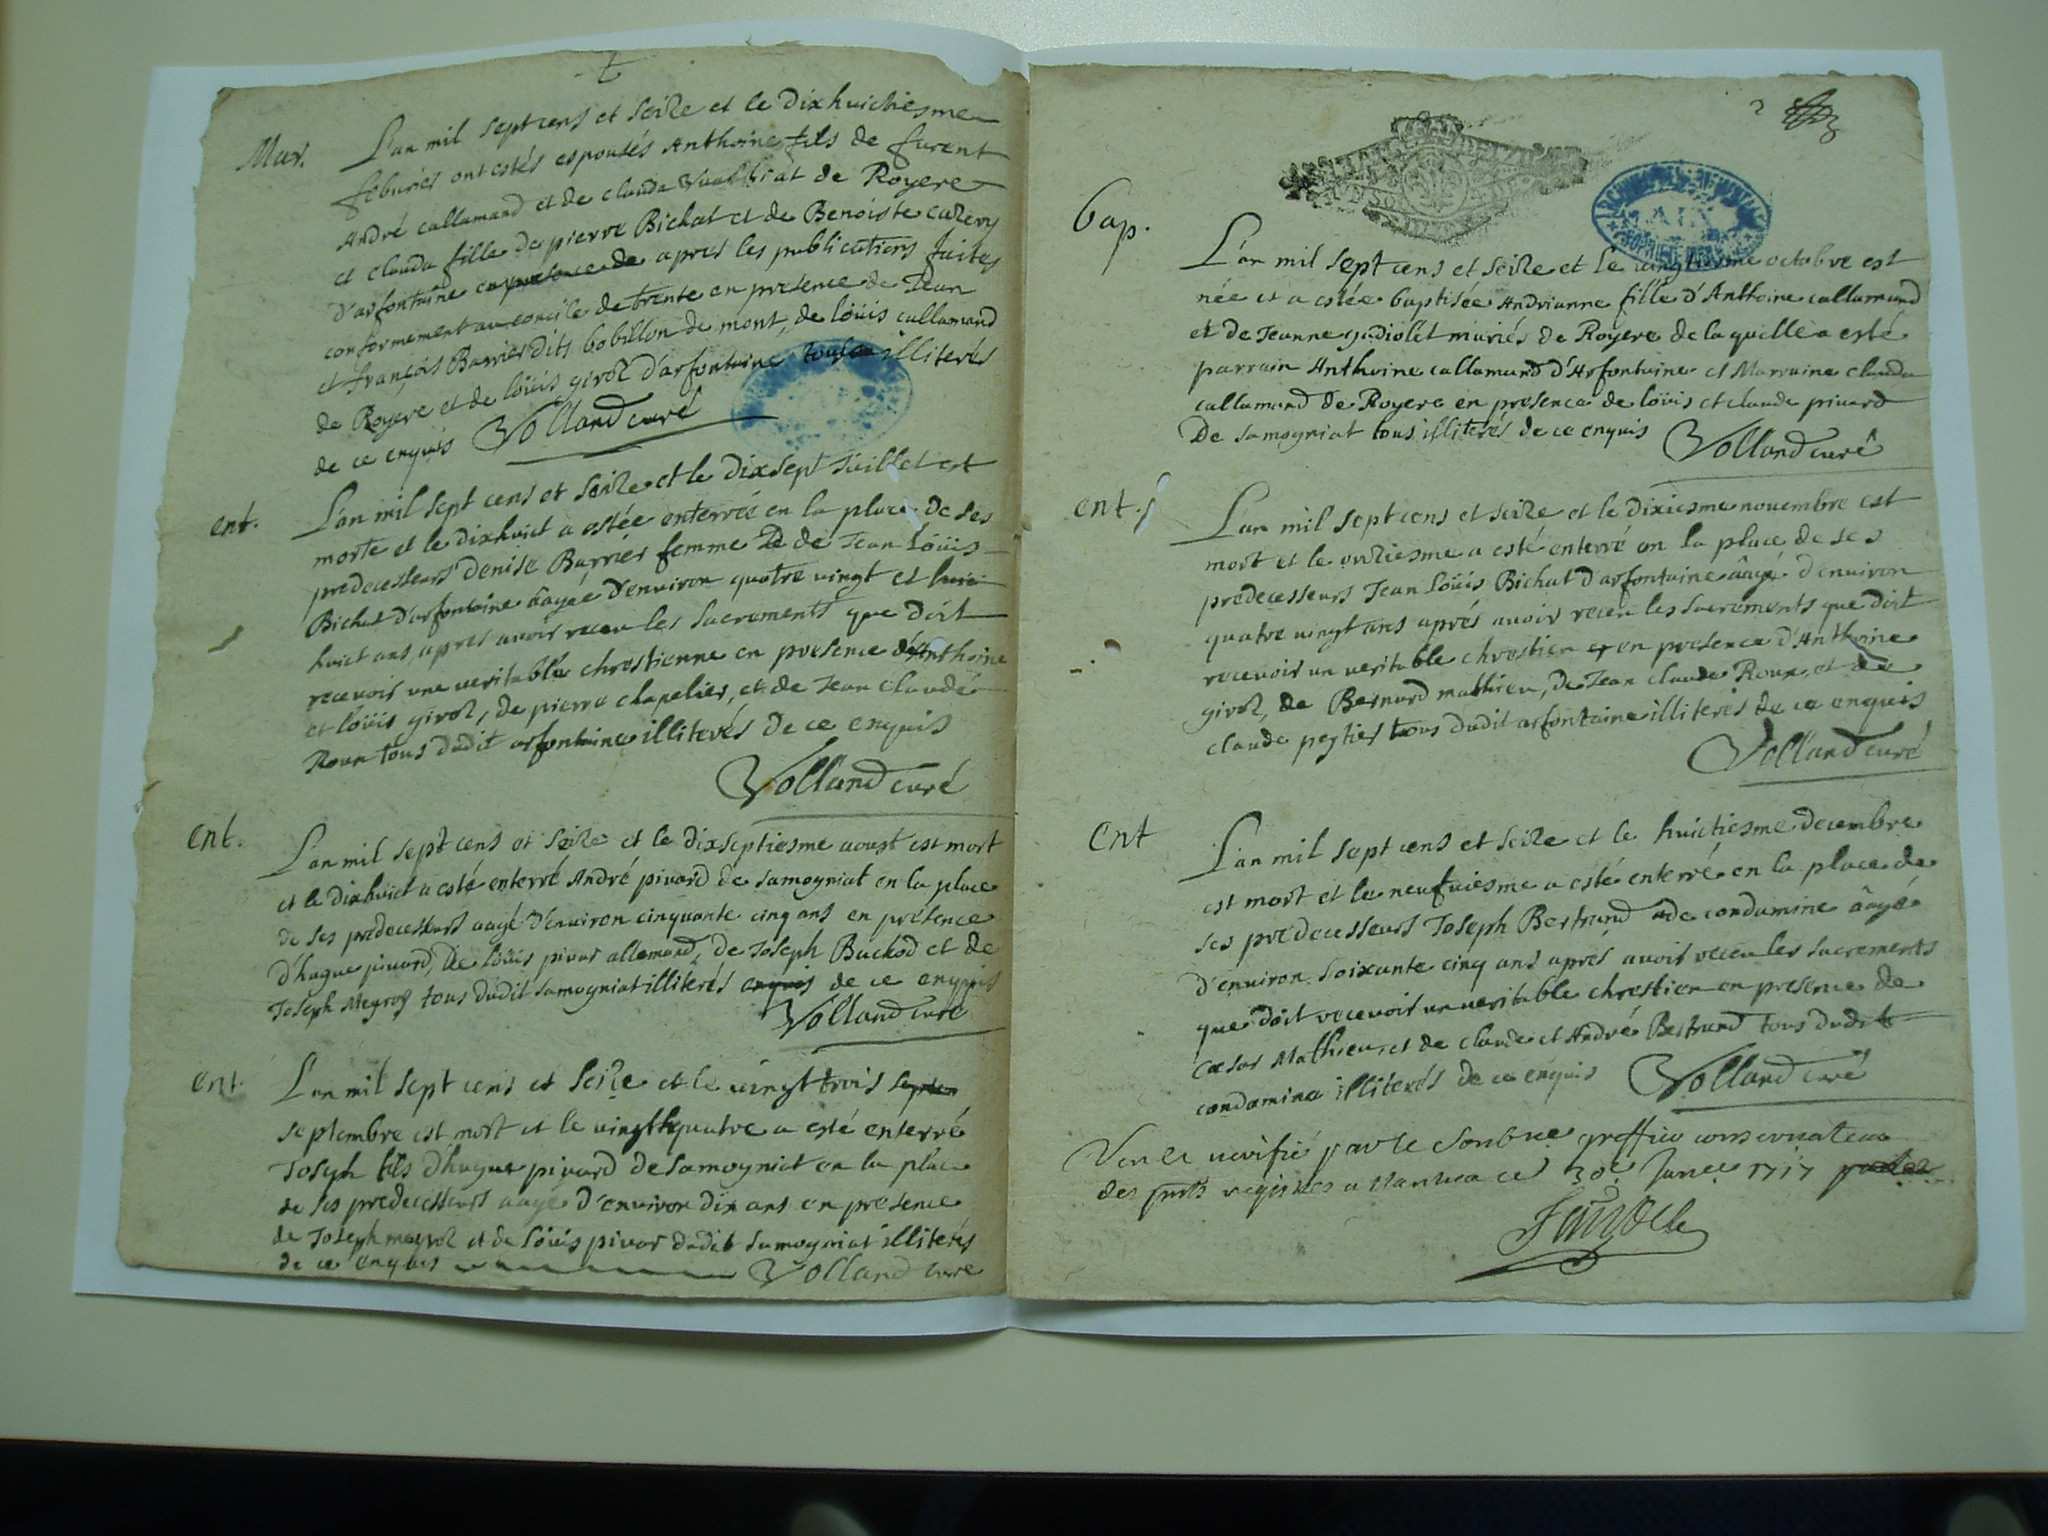 Mar.
L'an mil sept cens et seize et le dixhuictiesme
febvrier ont estés espousés Anthoine fils de furent
André callamand et de clauda de Royere
et clauda fille de pierre Bichat et de Benoiste
d'arfontaine apres les publications faites
conformement au concile de trente en presence de Jean
et françois Barrier dits bobillon de mont, de loüis callamand
de Royere et de loüis giroz d'arfontaine illiterés
de ce enquis Volland curé
ent.
L'an mil sept cens et seize et le dixsept Juillet est
morte et le dixhuict a estée enterrée en la place de ses
predecesseurs denise Barrier femme de Jean Loüis
Bichat d'arfontaine âagée d'environ quatre vingt et
huict ans, apres avoir receu les sacrements que doit
recevoir une veritable chrestienne en presence d'Anthoine
et loüis giroz, de pierre chapelier, et de Jean claude
Roux tous dudit arfontaine illiterés de ce enquis
Volland curé
ent.
L'an mil sept cens et seize et le dixseptiesme aoust est mort
et le dixhuict a esté enterré André pivard de samogniat en la place
de ses predecesseurs aagé d'environ cinquante cinq ans en présence
d'hugue pivard, de loüis pivar allemand, de Joseph Buchod et de
Joseph Megroz tous dudit samogniat illiterés enquis de ce enquis
Volland curé
ent.
L'an mil sept cens et seize et le vingt trois septem
septembre est mort et le vingtquatre a esté enterré
Joseph fils d'hugue pivard de samogniat en la place
de ses predecesseurs aagé d'environ dix ans en presence
de Joseph megroz et de Loüis pivar dudit samogniat illiterés
de ce enquis Volland curé
2
bap.
L'an mil sept cens et seize et le vingtiesme octobre est
née et a estée baptisée Andrianne fille d'Anthoine callamand
et de Jeanne gudiolet mariés de Royere de laquelle a esté
parrain Anthoine callamand d'Arfontaine et Marraine clauda
callamand de Royere en presence de loüis et claude pivard
De samogniat tous illiterés de ce enquis Volland curé
ent.
L'an mil sept cens et seize et le dixiesme novembre est
mort et le onziesme a esté enterré en la place de ses
predecesseurs Jean Loüis Bichat d'arfontaine âagé d'environ
quatre vingt ans aprés avoir receu les sacrements que doit
recevoir un veritable chrestien en presence d'Anthoine
giroz, de Bernard mathieu, de Jean claude Roux, et de
claude peytier tous dudit arfontaine illiterés de ce enquis
Volland curé
Ent
L'an mil sept cens et seize et le huictiesme decembre
est mort et le neufviesme a esté enterré en la place de
ses predecesseurs Joseph Bertrand de condamine âagé
d'environ soixante cinq ans aprés avoir receu les sacrements
que doit recevoir un veritable chrestien en presence de
Cæsar Mathieu, et de claude et André Bertrand tous dudit
condamine illiterés de ce enquis Volland curé
Veu et verifié par le greffier conservateur
des registres a Nantua ce 30e Janer 1717